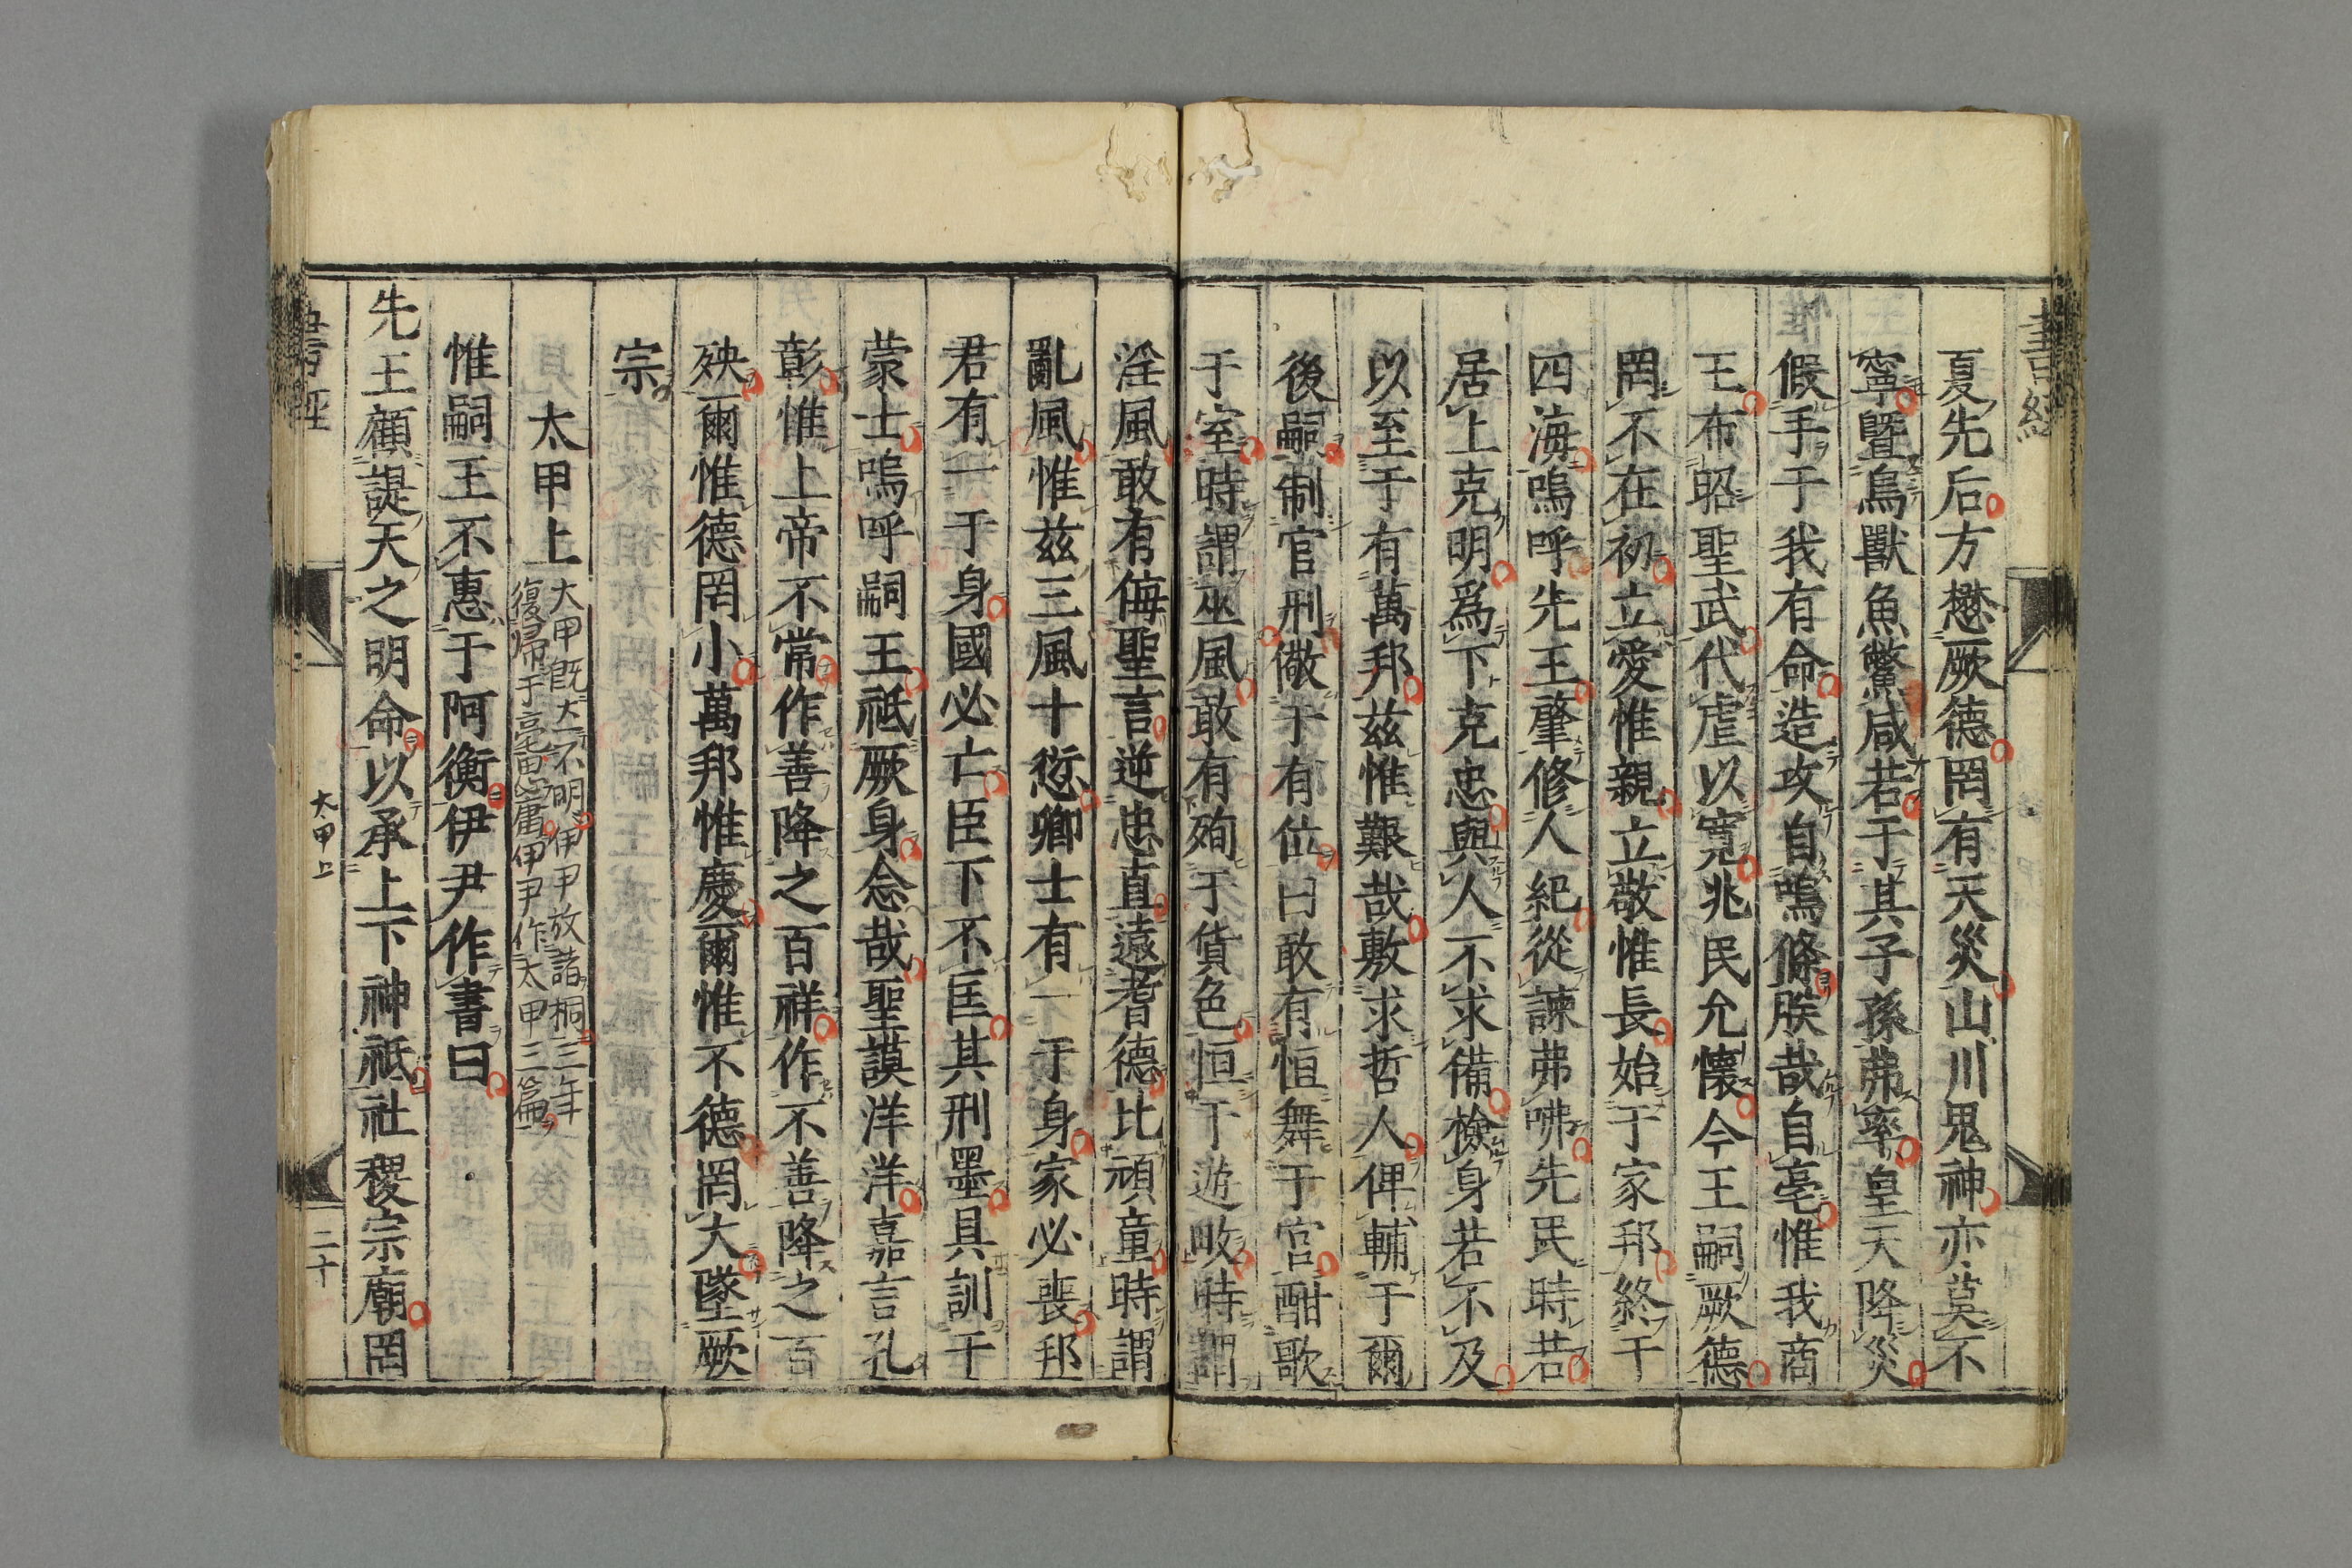 書經
夏先后方懋厥德罔有天災山川鬼神亦莫不
寧曁鳥獸魚鱉咸若于其子孫弗率皇天降災
假手于我有命造攻自鳴條朕哉自亳惟我商
王布昭聖武代虐以寬兆民允懷今王嗣厥德
罔不在初立愛惟親立敬惟長始于家邦終于
四海嗚呼先王肇修人紀從諫弗咈先民時若
居上克明爲下克忠與人不求備檢身若不及
以至于有萬邦茲惟艱哉敷求哲人俾輔于爾
後嗣制官刑儆于有位曰敢有恒舞于宮酣歌
于室時謂巫風敢有殉于貨色恒于遊畋時謂
淫風敢有侮聖言逆忠直遠耆德比頑童時謂
亂風惟茲三風十愆卿士有一于身家必喪邦
君有一于身國必亡臣下不匡其刑墨具訓于
蒙士嗚呼嗣王祗厥身念哉聖謨洋洋嘉言孔
彰惟上帝不常作善降之百祥作不善降之百
殃爾惟德罔小萬邦惟慶爾惟不德罔大墜厥
宗
太甲上
大甲既立不明伊甲放諸桐三年
復歸于亳思庸伊尹作太甲三篇
惟嗣王不惠于阿衡伊尹作書曰
先王顧諟天之明命以承上下神祗社稷宗廟罔
書經
大甲上
二十